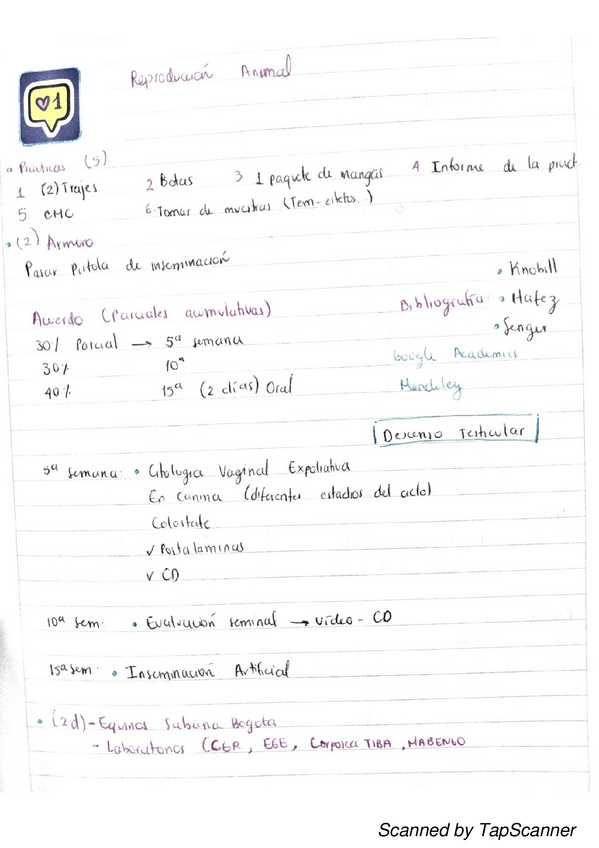 Reproducción Animal
1
• Practicas (5)
1 (2) Trajes 2 Botas 3 1 paquete de mangas 4 Informe de la pract
5 CMC 6. Tomas de muestras (Tem-
• (2) Armero
Pasar Pistola de inseminación
• Knobill
Acuerdo (Parciales acumulativas) Bibliografía: • Hafez
30% Parcial → 5ª semana • Senger
30% 10ª Google Academics
40% 15ª (2 días) Oral Mendeley
Descenso Testicular
5ª semana: • Citologia Vaginal Expoliativa
En canina (diferentes estadios del ciclo)
Colostate
✓ Portalaminas
✓ CD
10ª sem: • Evaluación seminal → video - CD
15ª sem: • Inseminación Artificial
• (2d) - Equinos Sabana Bogota
- Laboratorios (CGR, EGE, Corpoica TIBA, MABENGO
Scanned by TapScanner